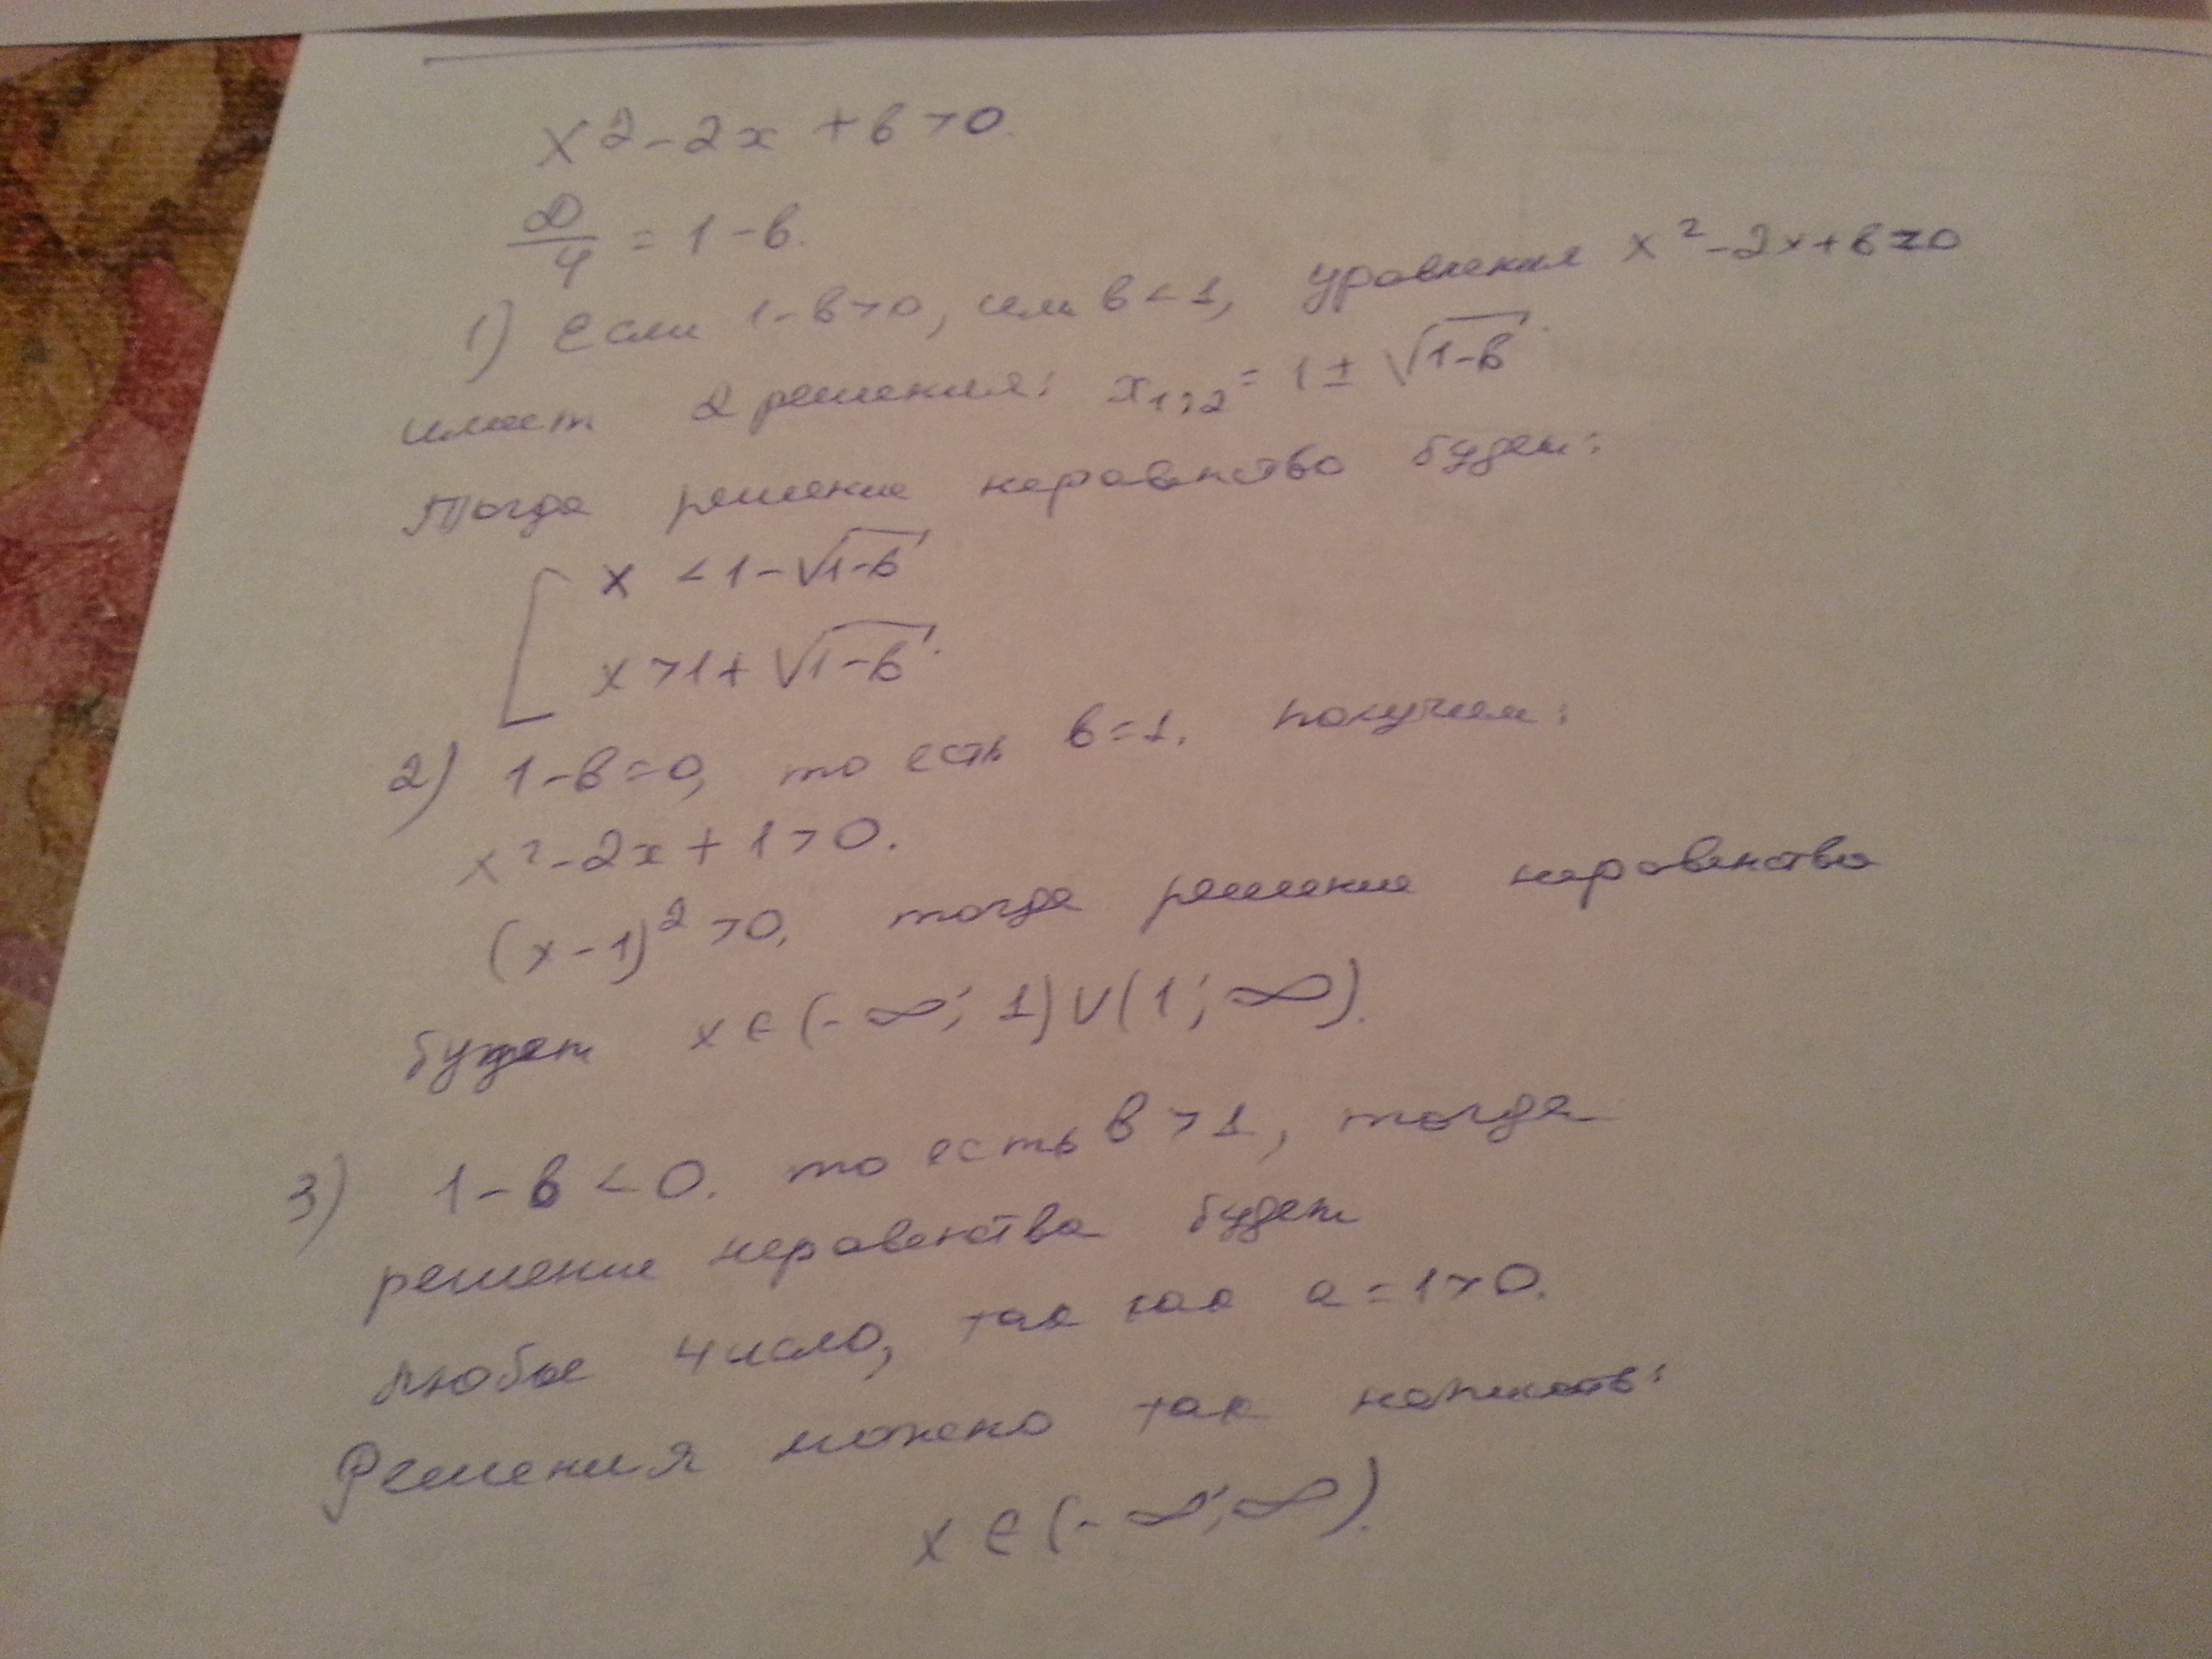 x² - 2x + в > 0.
D/4 = 1 - в.
1) Если 1-в>0, или в<1, уравнения x² - 2x + в = 0
имеет 2 решения: x₁,₂ = 1 ± √(1-в).
Тогда решение неравенства будет:
[ x < 1 - √(1-в)
x > 1 + √(1-в).
2) 1-в=0, то есть в=1. получим:
x² - 2x + 1 > 0.
(x-1)² > 0, тогда решение неравенства
будет x ∈ (-∞; 1) ∪ (1; ∞).
3) 1-в < 0. то есть в > 1, тогда
решение неравенства будет
любое число, так как a = 1 > 0.
Решения можно так написать:
x ∈ (-∞; ∞).